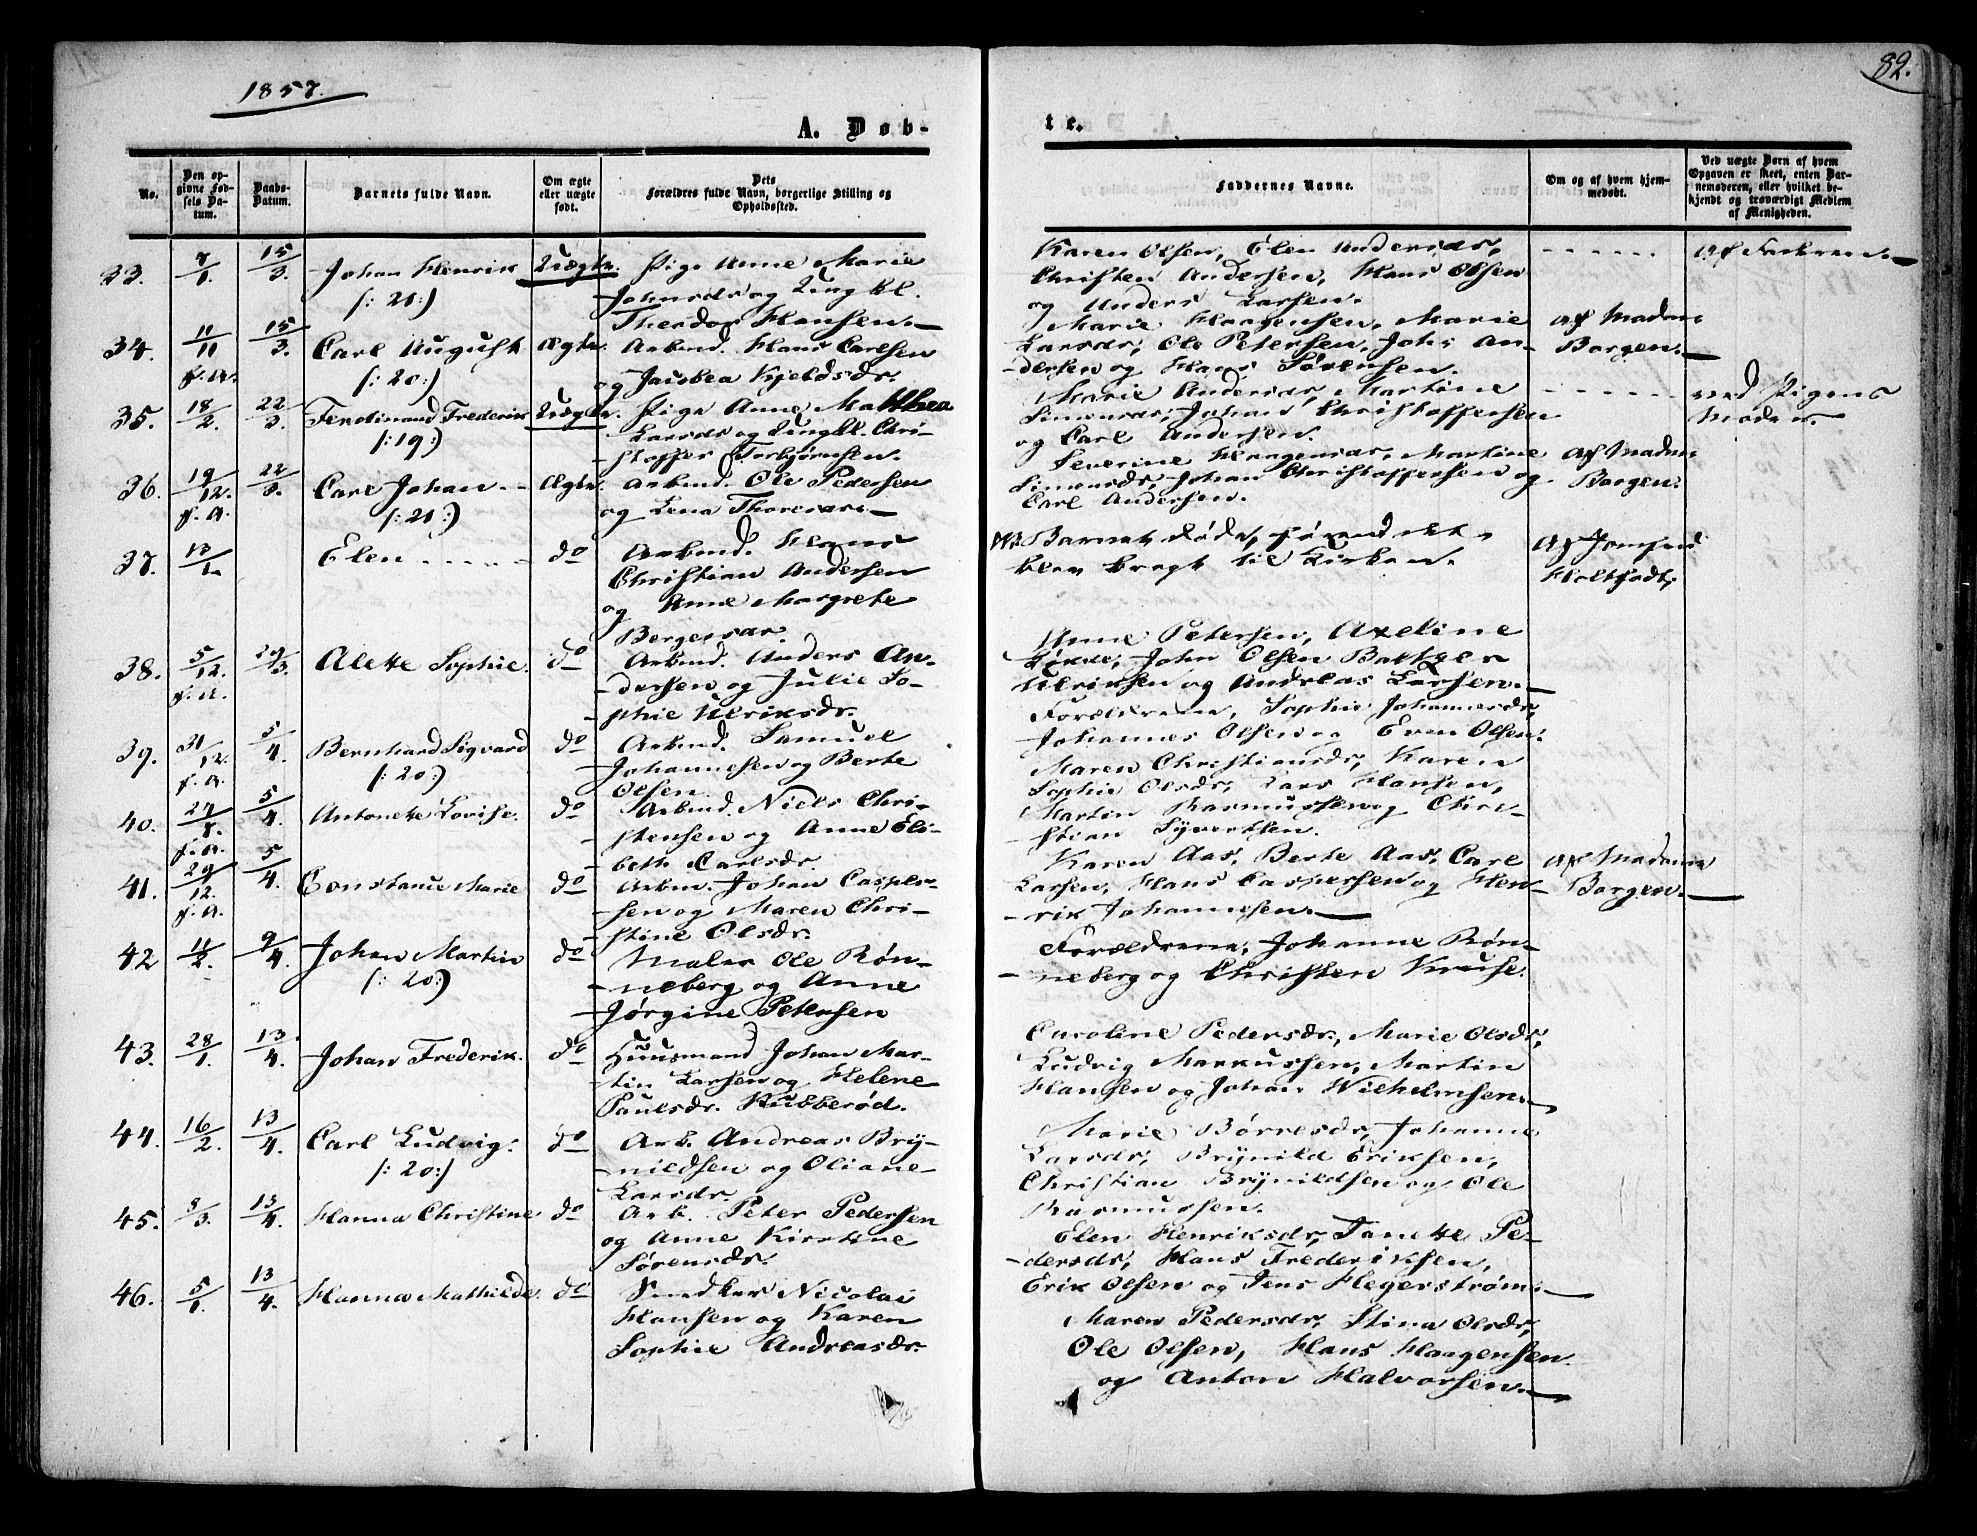 1857.
82.
A. Døb-
te.
No.
Den op-
givne Fød-
sels Da-
tum.
Daabs-
Datum.
Barnets fulde Navn.
Om ægte
eller uægte
født.
Dets
Forældres fulde Navn, borgerlige Stilling og
Opholdssted.
Faddernes Navne.
Om og af hvem hjem-
medøbt.
Ved uægte Børn af hvem
Opgaven er skeet, enten Bar-
nemoderen, eller hvilket be-
kjendt og troværdigt Medlem
af Menigheden.
33. 7/1. 15/3. Johan Henrik Uægte. Pige Anne Marie
(: 21:) Johnsdr og Ungkl.
Theodor Hansen.
Karen Olsen, Elen Andersdr,
Christen Andersen, Hans Olsen
og Anders Larsen.
Af Faderen.
34. 11/11 f. A. 15/3. Carl August Ægte. Arbmd. Hans Carlsen
(: 20:) og Jacobea Kjeldsdr.
Marie Haagensen, Marie
Larsdr, Ole Petersen, Joh: An-
dersen og Hans Sørensen.
Af Madm
Borgen.
35. 18/2. 22/3. Ferdinand Frederik Uægte. Pige Anne Matthea
(: 19:) Larsdr og Ungkl. Chri-
stoffer Torbjørnsen.
Marie Andersdr, Martine
Simensdr, Johan Christoffersen
og Carl Andersen.
ved Pigens
Moder.
36. 19/12. f. A. 22/3. Carl Johan Ægte. Arbmd. Ole Pedersen
(: 21:) og Lena Thoresdr.
Severine Haagensdr, Martine
Simensdr, Johan Christoffersen og
Carl Andersen.
Af Madm
Borgen.
37. 13/1. Elen do Arbmd. Hans
Christian Andersen
og Anne Margrete
Bergersdr.
NB. Barnet døde, førend det
blev bragt til Kirken.
Af Jomfru
Holtfodt;
38. 5/12. f. A. 29/3. Alette Sophie. do Arbmd. Anders An-
dersen og Julie So-
phie Ulriksdr.
Anne Petersen, Axeline
John Olsen
Ulriksen og Andreas Larsen.
39. 31/12. f. A. 5/4. Bernhard Sigvard do Arbmd. Samuel
(: 20:) Johannesen og Berte
Olsen.
Forældrene, Sophie Johannesdr,
Johannes Olsen og Even Olsen.
40. 27/8. f. A. 5/4. Antonette Lovise. do Arbmd. Niels Chri-
stensen og Anne Eli-
beth Carlsdr.
Maren Christiansdr, Karen
Sophie Olsdr, Lars Hansen,
Martin Rasmussen og Chri-
stian Syvertsen.
41. 29/12. f. A. 5/4. Constance Marie do Arbm. Johan Casper-
sen og Maren Chri-
stine Olsdr.
Karen Aas, Berte Aas, Carl
Larsen, Hans Caspersen og Hen-
rik Johannesen.
Af Madame
Borgen.
42 11/2. 9/4. Johan Martin do Maler Ole Røn-
(: 20:) neberg og Anne
Jørgine Petersen
Forældrene, Johanne Røn-
neberg og Christen Kruse.
43. 28/1. 13/4. Johan Frederik. do Huusmand Johan Mar-
tin Larsen og Helene
Paulsdr. Kubberød.
Caroline Pedersdr., Marie Olsdr,
Ludvig Markussen, Martin
Hansen og Johan Wilhelmsen.
44. 16/2. 13/4. Carl Ludvig: do Arb. Andreas Bry-
(: 20:) nildsen og Oliane
Larsdr.
Marie Børresdr, Johanne
Larsdr, Brynild Eriksen,
Christian Brynildsen og Ole
Rasmussen.
45. 8/3. 13/4. Hanna Christine do Arb. Peter Pedersen
og Anne Kirstine
Sørensdr.
Elen Henriksdr, Janette Pe-
dersdr, Hans Frederiksen,
Erik Olsen og Jens Hegerstrøm.
46. 5/1. 13/4. Hanna Mathilde. do Snedker Nicolai
Hansen og Karen
Sophie Andreasdr.
Maren Pedersdr, Stina Olsdr,
Ole Olsen, Hans Haagensen
og Anton Halvorsen.